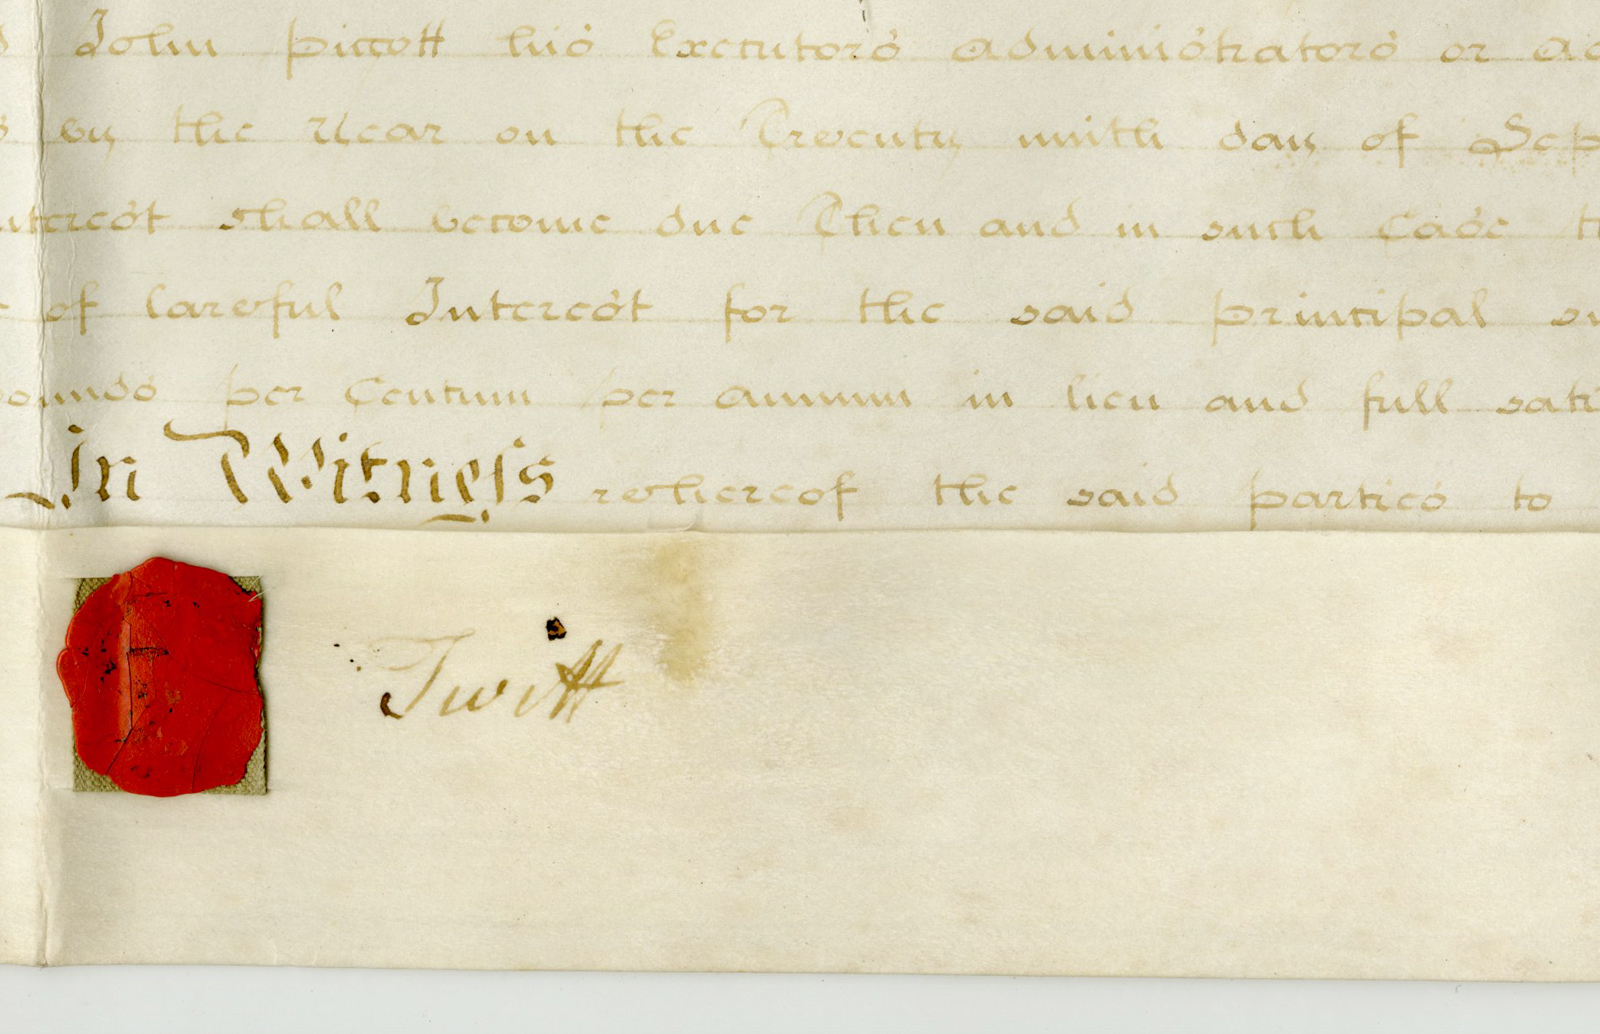 John Piggott his Executors Administrators or
by the Year on the Twenty ninth day of Sep
nterest shall become due Then and in such Case t
of lawful Interest for the said principal su
pounds per Centum per annum in lieu and full sati
In Witness whereof the said parties to
Twitt